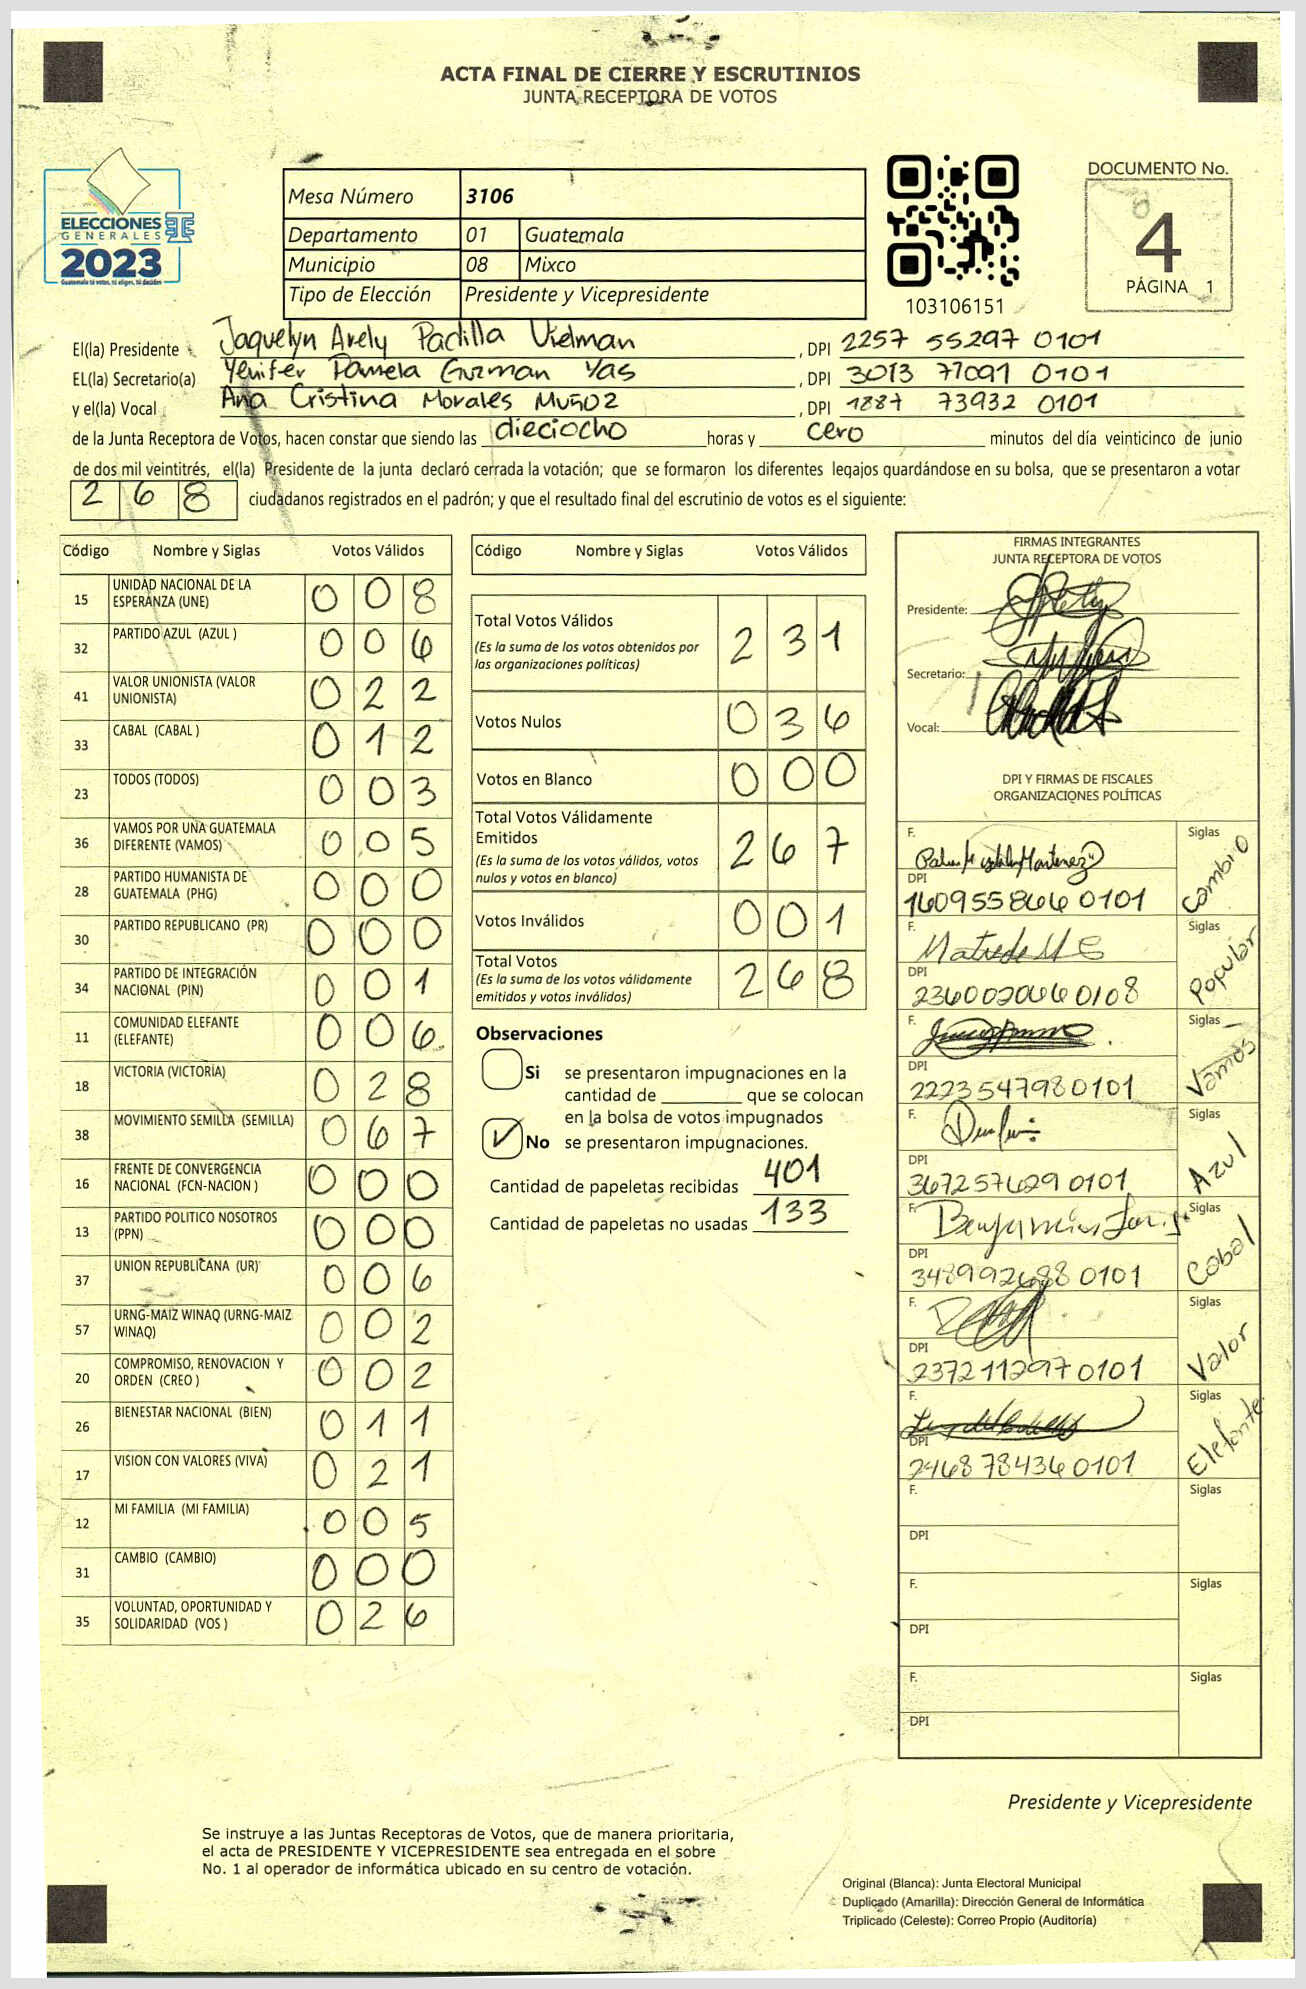 ACTA FINAL DE CIERRE Y ESCRUTINIOS
JUNTA RECEPTORA DE VOTOS
ELECCIONES
GENERALES
2023
Guatemala tú votas, tú eliges, tú decides
Mesa Número 3106
Departamento 01 Guatemala
Municipio 08 Mixco
Tipo de Elección Presidente y Vicepresidente
103106151
DOCUMENTO No.
4
PÁGINA 1
El(la) Presidente Jaquelyn Arely Padilla Vielman , DPI 2257 55297 0101
EL(la) Secretario(a) Yenifer Pamela Guzman Yas , DPI 3013 77091 0101
y el(la) Vocal Ana Cristina Morales Muñoz , DPI 1887 73932 0101
de la Junta Receptora de Votos, hacen constar que siendo las dieciocho horas y cero minutos del día veinticinco de junio
de dos mil veintitrés, el(la) Presidente de la junta declaró cerrada la votación; que se formaron los diferentes legajos guardándose en su bolsa, que se presentaron a votar
268 ciudadanos registrados en el padrón; y que el resultado final del escrutinio de votos es el siguiente:
Código Nombre y Siglas Votos Válidos
15 UNIDAD NACIONAL DE LA ESPERANZA (UNE) 008
32 PARTIDO AZUL (AZUL ) 006
41 VALOR UNIONISTA (VALOR UNIONISTA) 022
33 CABAL (CABAL ) 012
23 TODOS (TODOS) 003
36 VAMOS POR UNA GUATEMALA DIFERENTE (VAMOS) 005
28 PARTIDO HUMANISTA DE GUATEMALA (PHG) 000
30 PARTIDO REPUBLICANO (PR) 000
34 PARTIDO DE INTEGRACIÓN NACIONAL (PIN) 001
11 COMUNIDAD ELEFANTE (ELEFANTE) 006
18 VICTORIA (VICTORIA) 028
38 MOVIMIENTO SEMILLA (SEMILLA) 067
16 FRENTE DE CONVERGENCIA NACIONAL (FCN-NACION ) 000
13 PARTIDO POLITICO NOSOTROS (PPN) 000
37 UNION REPUBLICANA (UR) 006
57 URNG-MAIZ WINAQ (URNG-MAIZ WINAQ) 002
20 COMPROMISO, RENOVACION Y ORDEN (CREO ) 002
26 BIENESTAR NACIONAL (BIEN) 011
17 VISION CON VALORES (VIVA) 021
12 MI FAMILIA (MI FAMILIA) 005
31 CAMBIO (CAMBIO) 000
35 VOLUNTAD, OPORTUNIDAD Y SOLIDARIDAD (VOS ) 026
Código Nombre y Siglas Votos Válidos
Total Votos Válidos 231
(Es la suma de los votos obtenidos por
las organizaciones políticas)
Votos Nulos 036
Votos en Blanco 000
Total Votos Válidamente
Emitidos 267
(Es la suma de los votos válidos, votos
nulos y votos en blanco)
Votos Inválidos 001
Total Votos 268
(Es la suma de los votos válidamente
emitidos y votos inválidos)
Observaciones
Si se presentaron impugnaciones en la
cantidad de ________ que se colocan
en la bolsa de votos impugnados
No se presentaron impugnaciones.
Cantidad de papeletas recibidas 401
Cantidad de papeletas no usadas 133
FIRMAS INTEGRANTES
JUNTA RECEPTORA DE VOTOS
Presidente:
Secretario:
Vocal:
DPI Y FIRMAS DE FISCALES
ORGANIZACIONES POLÍTICAS
F. Siglas Cambio
DPI
1609558660101
F. Siglas Popular
DPI
2360020660108
F. Siglas Vamos
DPI
2223547980101
F. Siglas Azul
DPI
3672576290101
F. Siglas Cabal
DPI
3489926880101
F. Siglas Valor
DPI
2372112970101
F. Siglas Elefante
DPI
2468784360101
F. Siglas
DPI
F. Siglas
DPI
F. Siglas
DPI
Presidente y Vicepresidente
Se instruye a las Juntas Receptoras de Votos, que de manera prioritaria,
el acta de PRESIDENTE Y VICEPRESIDENTE sea entregada en el sobre
No. 1 al operador de informática ubicado en su centro de votación.
Original (Blanca): Junta Electoral Municipal
Duplicado (Amarilla): Dirección General de Informática
Triplicado (Celeste): Correo Propio (Auditoría)